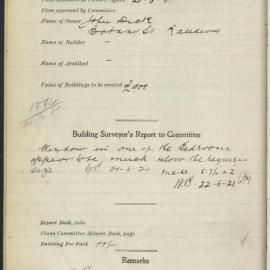 Plan approved by Committee
Name of Owner John Dick
Botany St Randwick
Name of Builder "
Name of Architect "
Value of Buildings to be erected £900
Building Surveyor's Report to Committee
Window in one of the Bedrooms
appear to be much below the require
size 21-6-21 made 5'7½ x 2
22-6-21
Report Book, folio
Plans Committee Minute Book, page
Building Fee Paid
Remarks